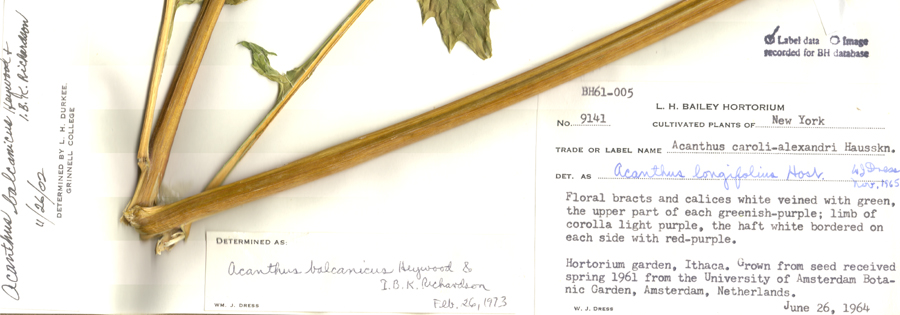 Acanthus balcanicus Heywood &
I.B.K. Richardson
11/26/02
DETERMINED BY L. H. DURKEE
GRINNELL COLLEGE
DETERMINED AS:
Acanthus balcanicus Heywood &
I.B.K. Richardson
Feb. 26, 1973
WM. J. DRESS
Label data Image
recorded for BH database
BH61-005
L. H. BAILEY HORTORIUM
No. 9141 CULTIVATED PLANTS OF New York
TRADE OR LABEL NAME Acanthus caroli-alexandri Hausskn.
DET. AS Acanthus longifolius Host. WJ Dress
Nov, 1965
Floral bracts and calices white veined with green,
the upper part of each greenish-purple; limb of
corolla light purple, the haft white bordered on
each side with red-purple.
Hortorium garden, Ithaca. Grown from seed received
spring 1961 from the University of Amsterdam Bota-
nic Garden, Amsterdam, Netherlands.
W. J. DRESS June 26, 1964